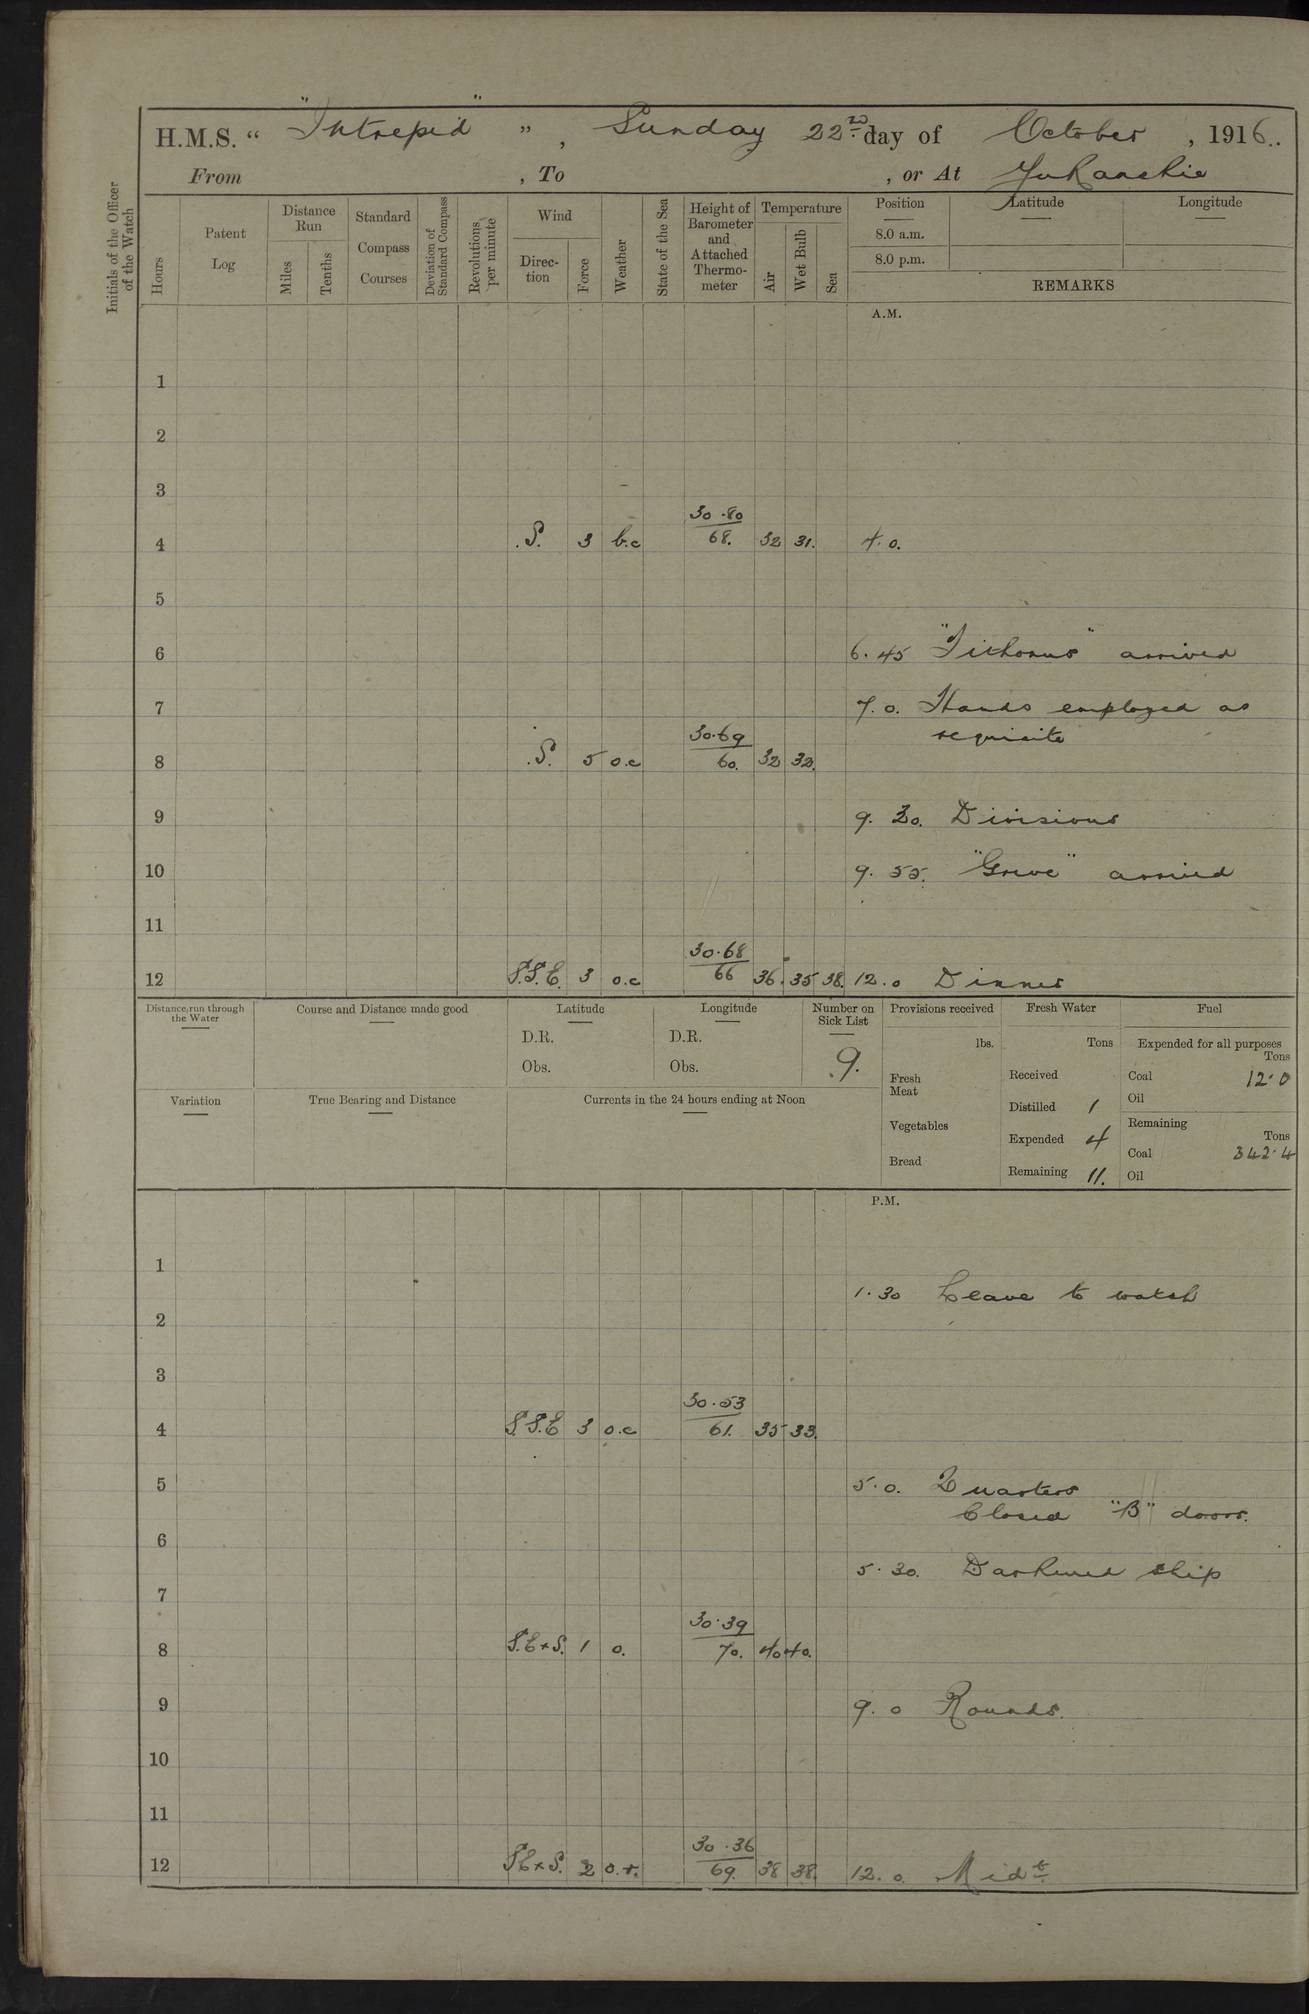 H.M.S. "Intrepid", Sunday 22nd day of October, 1916.
From , To , or At Yukanskie
Initials of the Officer of the Watch
Hours
Patent Log
Distance Run
Miles
Tenths
Standard Compass Courses
Deviation of Standard Compass
Revolutions per minute
Wind
Direction
Force
Weather
State of the Sea
Height of Barometer and Attached Thermometer
Temperature
Air
Wet Bulb
Sea
Position
8.0 a.m.
8.0 p.m.
Latitude
Longitude
REMARKS
A.M.
1
2
3
4 S. 3 b.c 30.80 68. 32 31. 4.0.
5
6 6.45 "Tithonus" arrived
7 7.0. Hands employed as
requisite
8 S. 5 o.c 30.69 60. 32 32.
9 9.30. Divisions
10 9.55. "Grive" arrived
11
12 S.S.E. 3 o.c 30.68 66 36. 35 38. 12.0 Dinner
Distance run through the Water
Course and Distance made good
Latitude
D.R.
Obs.
Longitude
D.R.
Obs.
Number on Sick List
9.
Provisions received
lbs.
Fresh Meat
Vegetables
Bread
Fresh Water
Tons
Received
Distilled 1
Expended 4
Remaining 11.
Fuel
Expended for all purposes
Tons
Coal 12.0
Oil
Remaining
Tons
Coal 342.4
Oil
Variation
True Bearing and Distance
Currents in the 24 hours ending at Noon
P.M.
1
1.30 Leave to watch
2
3
4 S.S.E 3 o.c 30.53 61. 35 33.
5 5.0. Quarters
Closed "B" doors.
6
5.30. Darkened ship
7
8 S.E x S. 1 o. 30.39 70. 40 40.
9 9.0 Rounds.
10
11
12 SE x S. 2 o.r. 30.36 69. 38 38. 12.0. Midt